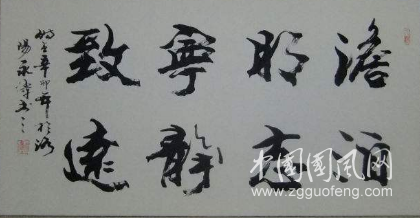 澹泊
明志
寧靜
致遠
辛卯年於洛
陽永
中国国风网
www.zgguofeng.com